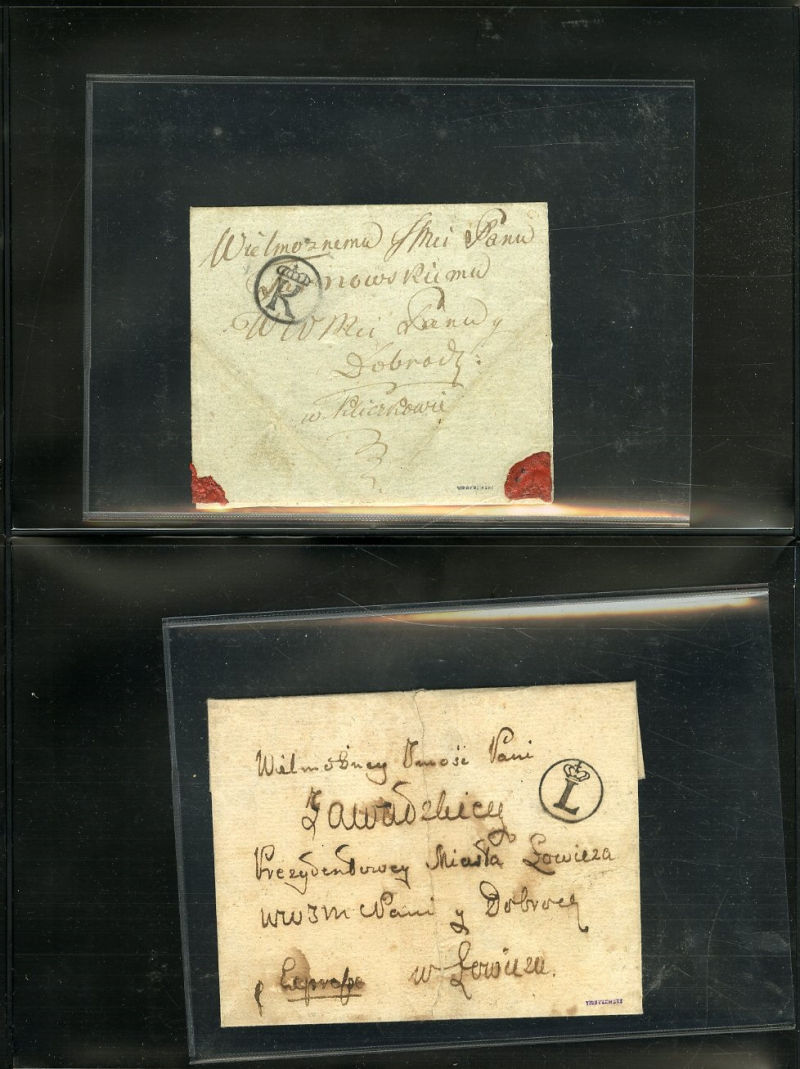 Wielmoznemu JMci Panu
nowskiemu
R
WWMci Panu y
Dobrodz:
w Kliczkowie
Wielmożney Imość Pani
L
Zawadzkiey
Prezydentowey Miasta Łowicza
WWJM Pani y Dobrodz
p Expresse w Łowiczu.